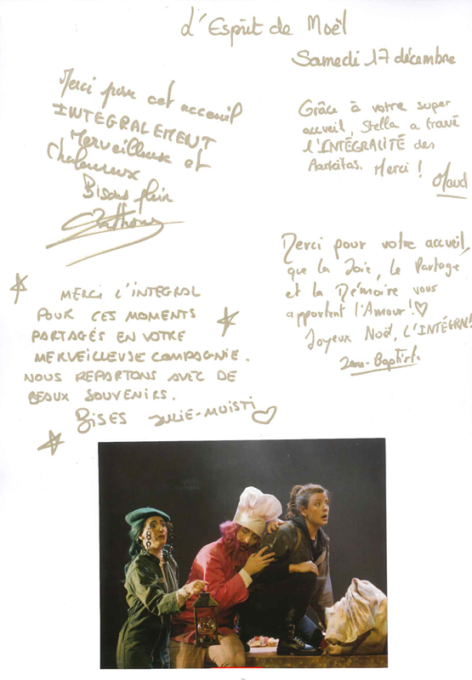 L'Esprit de Noël
Samedi 17 décembre
Merci pour cet accueil
INTEGRALEMENT
Merveilleux et
Chaleureux
Bisous plein
Anthony
Grâce à votre super
accueil, Stella a trouvé
l'INTÉGRALITÉ des
Merci !
Maud
Merci pour votre accueil,
que la Joie, le Partage
et la Mémoire vous
apportent l'Amour !♡
Joyeux Noël, L'INTÉGRAL!
Jean-Baptiste
MERCI L'INTEGRAL
POUR CES MOMENTS
PARTAGÉS EN VOTRE
MERVEILLEUSE COMPAGNIE.
NOUS REPARTONS AVEC DE
BEAUX SOUVENIRS.
BISES JULIE-MUISTI ♡